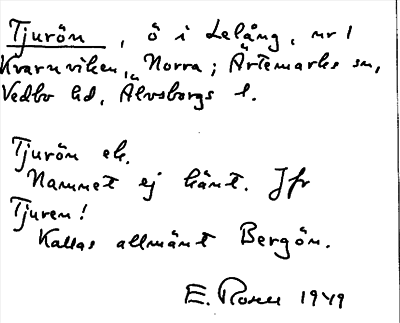 Tjurön, ö i Lelång, nr 1
Kvarnviken, Norra; Ärtemarks sn,
Vedbo hd, Älvsborgs l.
Tjurön ek.
Namnet ej känt. Jfr
Tjuren!
Kallas allmänt Bergön.
E. 1949